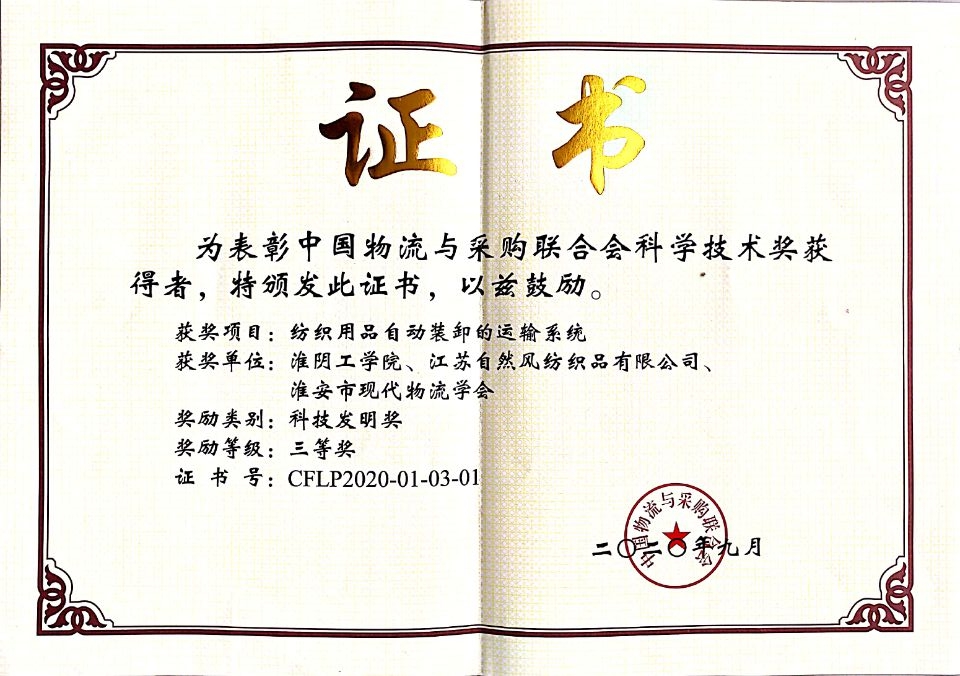 证书
为表彰中国物流与采购联合会科学技术奖获
得者，特颁发此证书，以兹鼓励。
获奖项目：纺织用品自动装卸的运输系统
获奖单位：淮阴工学院、江苏自然风纺织品有限公司、
淮安市现代物流学会
奖励类别：科技发明奖
奖励等级：三等奖
证书号：CFLP2020-01-03-01
中国物流与采购联合会
二〇二〇年九月